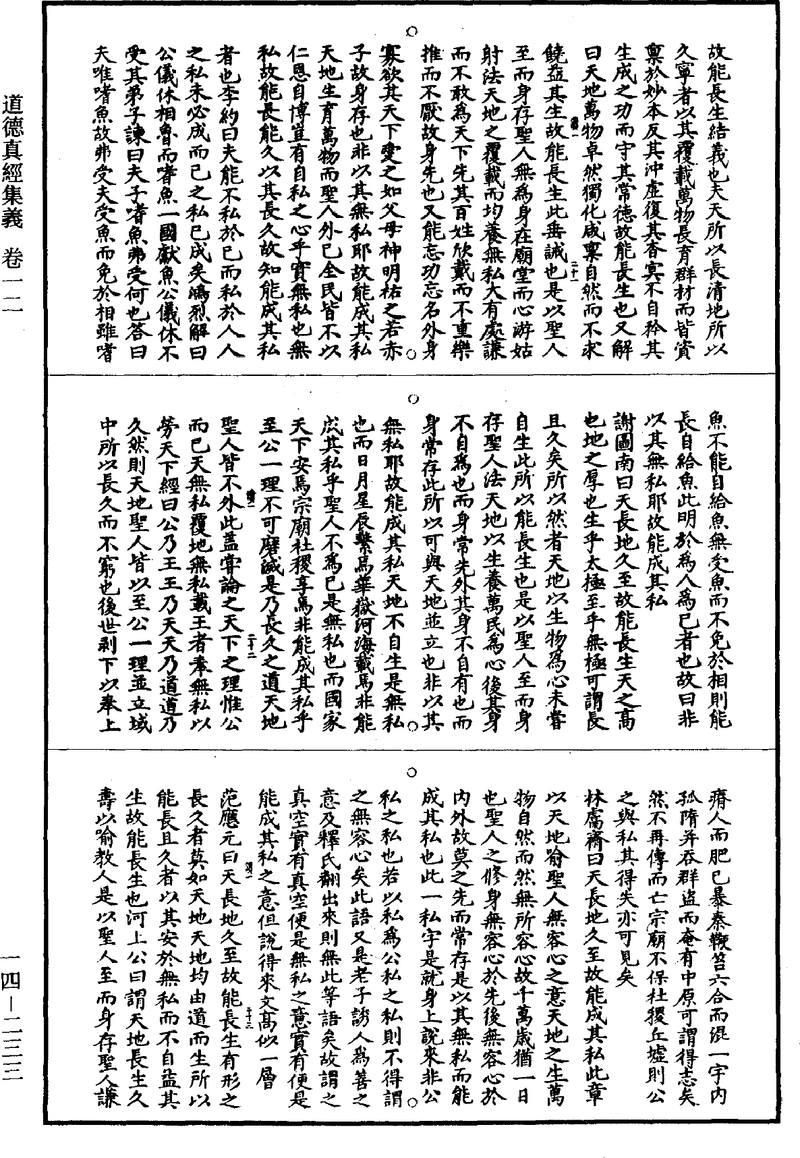 道德真經集義　卷一二
一四—二三三
故能長生結義也夫天所以長清地所以
久寧者以其覆載萬物長育群材而皆資
稟於妙本反其沖虛復其杳冥不自矜其
生成之功而守其常德故能長生也又解
曰天地萬物卓然獨化咸稟自然而不求
饒益其生故能長生此垂誡也是以聖人
至而身存聖人無為身在廟堂而心游姑
射法天地之覆載而均養無私大有處謙
而不敢為天下先其百姓欣戴而不重樂
推而不厭故身先也又能忘功忘名外身
寡欲其天下愛之如父母神明祐之若赤
子故身存也非以其無私耶故能成其私
天地生育萬物而聖人外己全民皆不以
仁恩自博豈有自私之心乎實無私也無
私故能長能久以其長久故知能成其私
者也李約曰夫能不私於己而私於人人
之私未必成而己之私已成矣鴻烈解曰
公儀休相魯而嗜魚一國獻魚公儀休不
受其弟子諫曰夫子嗜魚弗受何也答曰
夫唯嗜魚故弗受夫受魚而免於相雖嗜
魚不能自給魚無受魚而不免於相則能
長自給魚此明於為人為己者也故曰非
以其無私耶故能成其私
謝圖南曰天長地久至故能長生天之高
也地之厚也生乎太極至乎無極可謂長
且久矣所以然者天地以生物為心未嘗
自生此所以能長生也是以聖人至而身
存聖人法天地以生養萬民為心後其身
不自為也而身常先外其身不自有也而
身常存此所以可與天地並立也非以其
無私耶故能成其私天地不自生是無私
也而日月星辰繫焉華嶽河海載焉非能
成其私乎聖人不為己是無私也而國家
天下安焉宗廟社稷享焉非能成其私乎
至公一理不可磨滅是乃長久之道天地
聖人皆不外此蓋嘗論之天下之理惟公
而已天無私覆地無私載王者奉無私以
勞天下經曰公乃王王乃天天乃道道乃
久然則天地聖人皆以至公一理並立域
中所以長久而不窮也後世剥下以奉上
瘠人而肥己暴秦鞭笞六合而混一宇内
孤隋并吞群盜而奄有中原可謂得志矣
然不再傳而亡宗廟不保社稷丘墟則公
之與私其得失亦可見矣
林鬳齋曰天長地久至故能成其私此章
以天地喻聖人無容心之意天地之生萬
物自然而然無所容心故千萬歲猶一日
也聖人之修身無容心於先後無容心於
内外故莫之先而常存是以其無私而能
成其私也此一私字是就身上說來非公
私之私也若以私為公私之私則不得謂
之無容心矣此語又是老子誘人為善之
意及釋氏翻出來則無此等語矣故謂之
真空實有真空便是無私之意實有便是
能成其私之意但說得來文高似一層
范應元曰天長地久至故能長生有形之
長久者莫如天地天地均由道而生所以
能長且久者以其安於無私而不自益其
生故能長生也河上公曰謂天地長生久
壽以喻教人是以聖人至而身存聖人謙